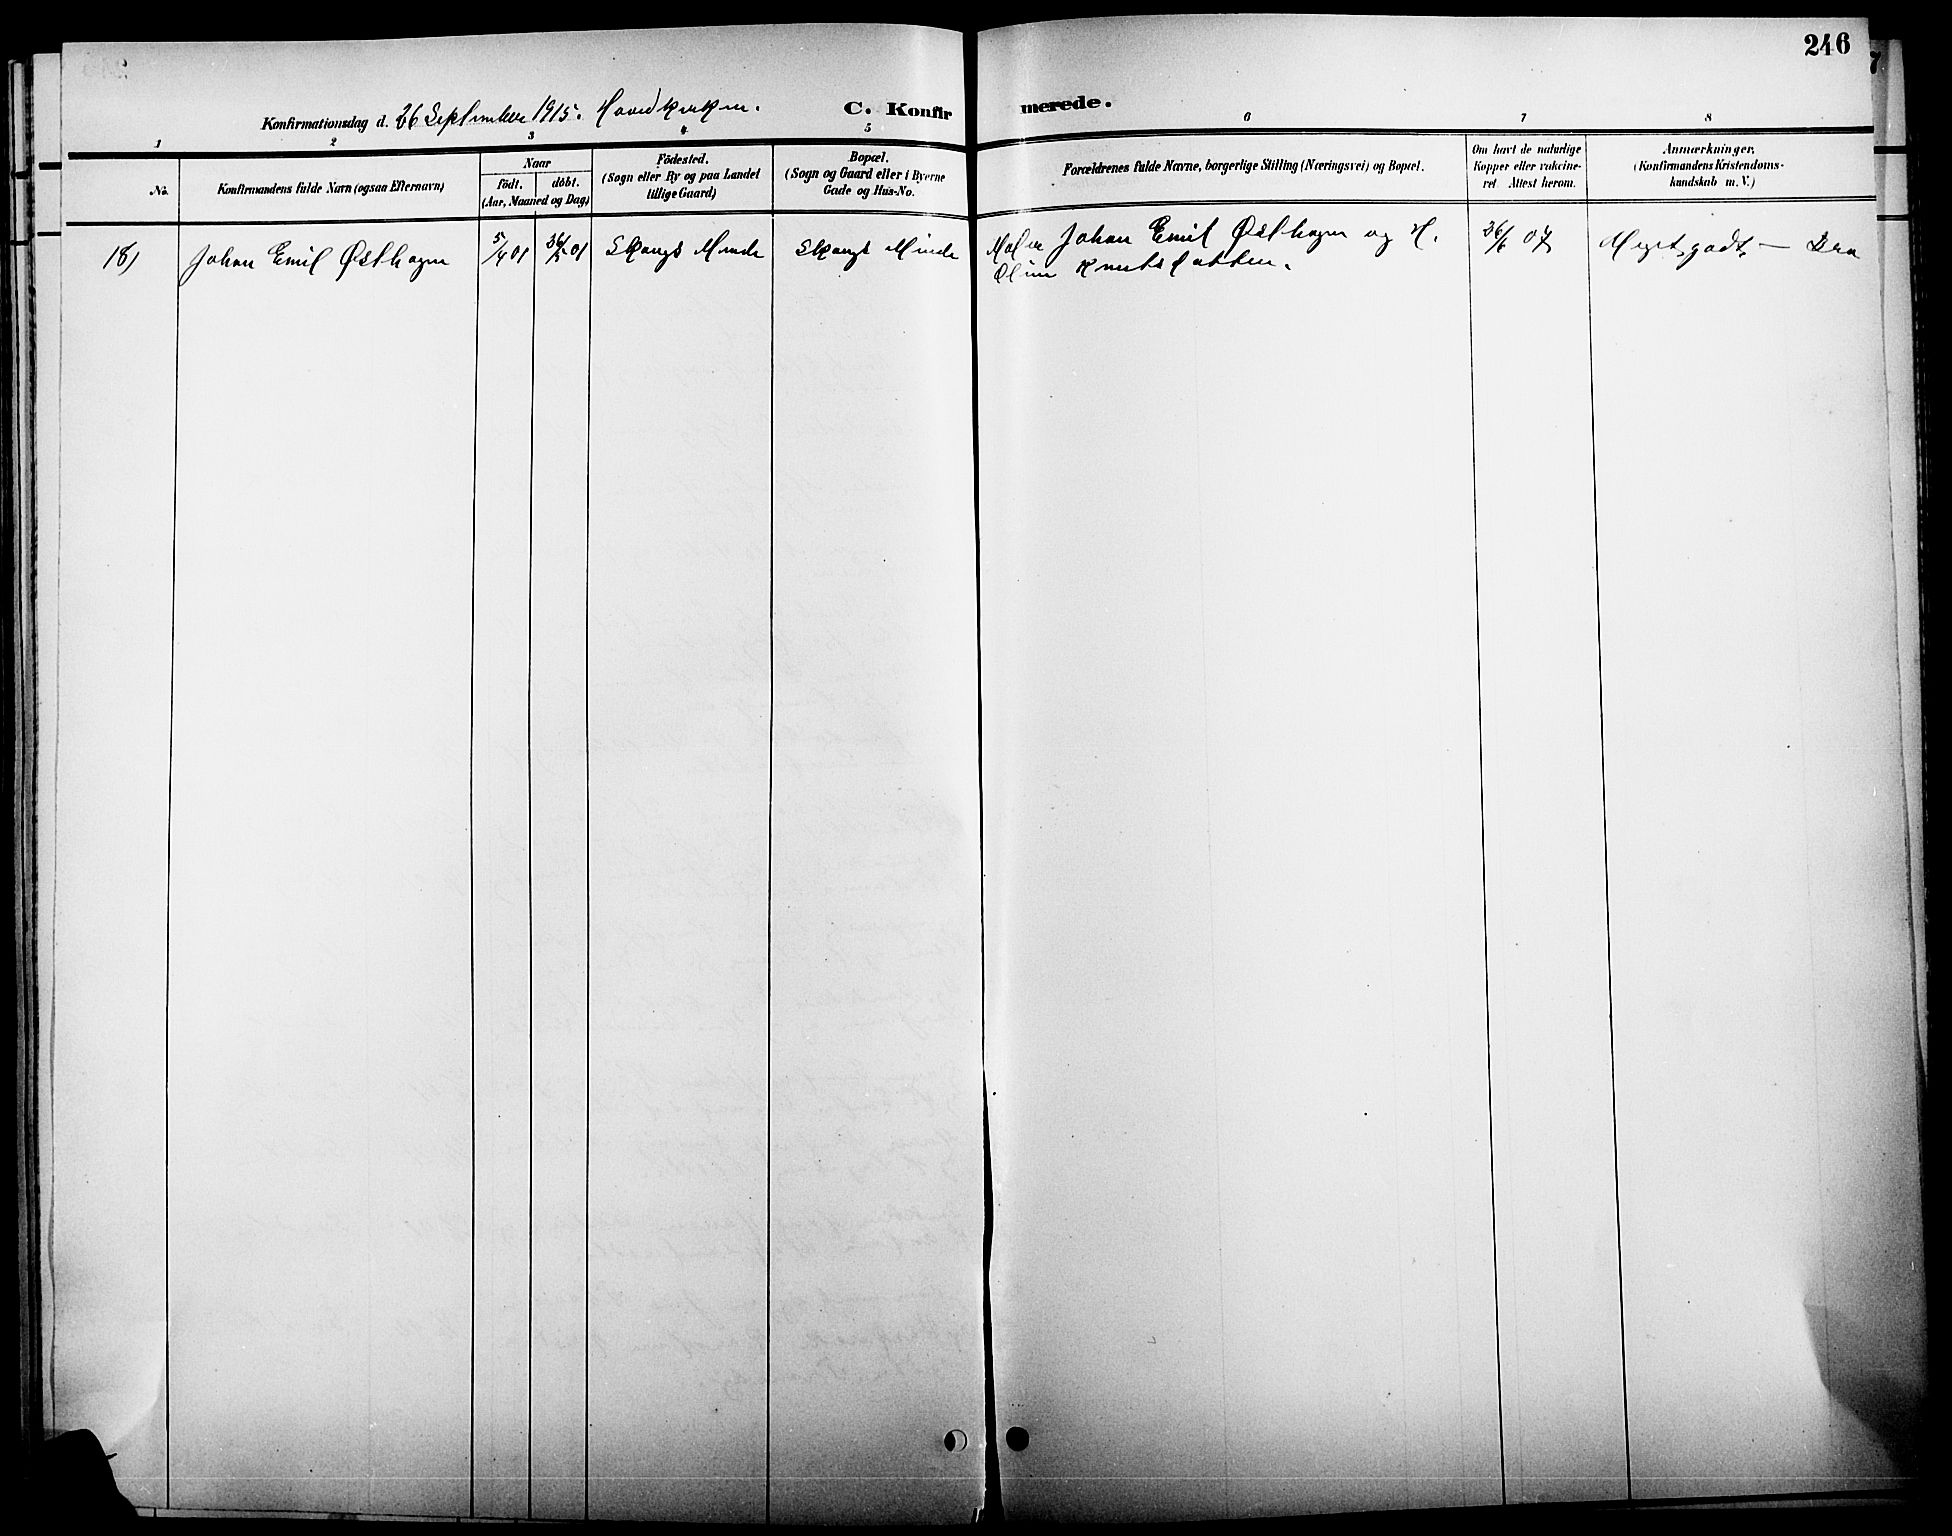 246
Konfirmationsdag d. 26 September 1915. Hovedkirken.
C. Konfirmerede.
1 2 3 4 5 6 7 8
No.
Konfirmandens fulde Navn (ogsaa Efternavn)
Naar
födt. döbt.
(Aar, Maaned og Dag)
Födested.
(Sogn eller By og paa Landet
tillige Gaard)
Bopæl.
(Sogn og Gaard eller i Byerne
Gade og Hus-No.
Forældrenes fulde Navne, borgerlige Stilling (Næringsvei) og Bopæl.
Om havt de naturlige
Kopper eller vakcine-
ret. Attest herom.
Anmærkninger,
(Konfirmandens Kristendoms-
kundskab m. V.)
18) Johan Emil Østhagen 5/4 01 26/5 01 Skaugs Minde Skaugs Minde Maler Johan Emil Østhagen og H. 26/6 07 Meget godt — Bra
Oline Knutsdatter.